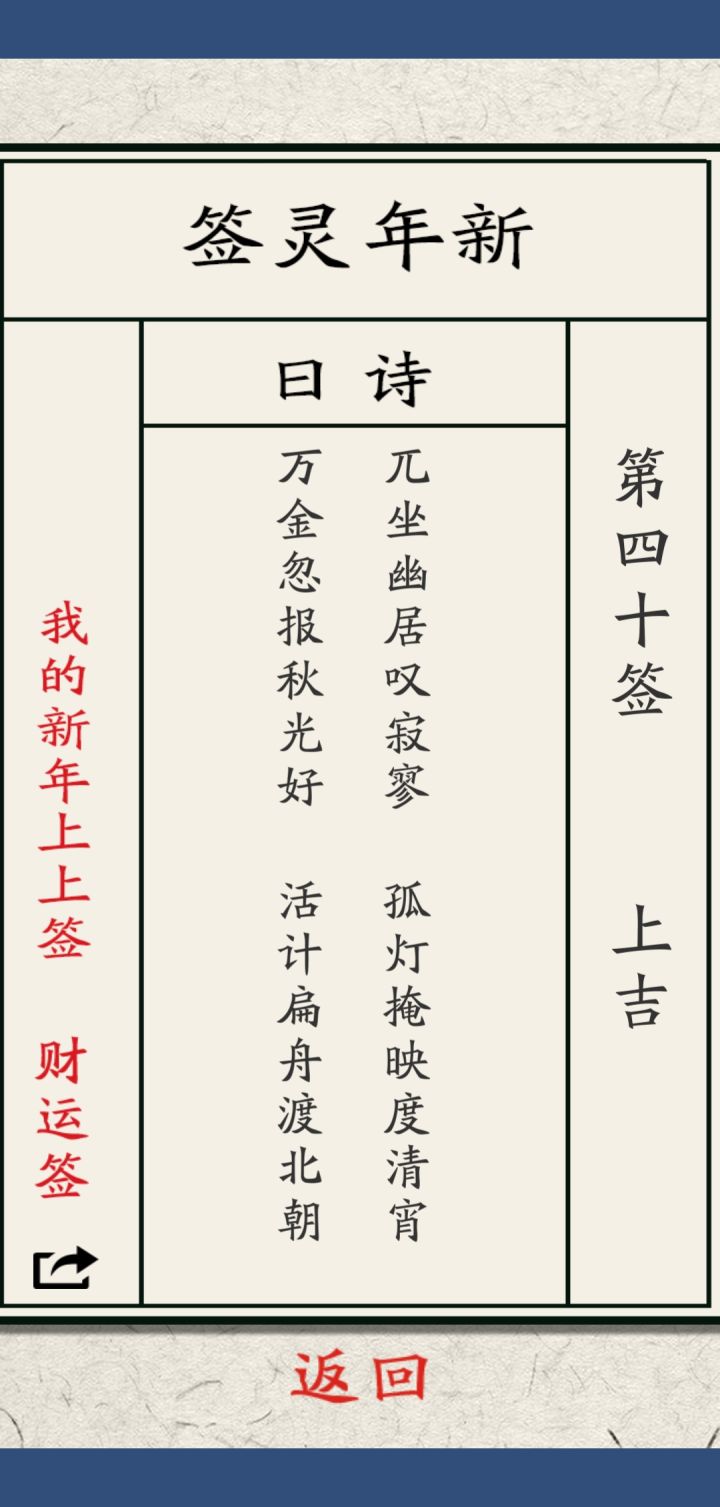 新年灵签
第四十签 上吉
诗曰
兀坐幽居叹寂寥 孤灯掩映度清宵
万金忽报秋光好 活计扁舟渡北朝
我的新年上上签 财运签
返回